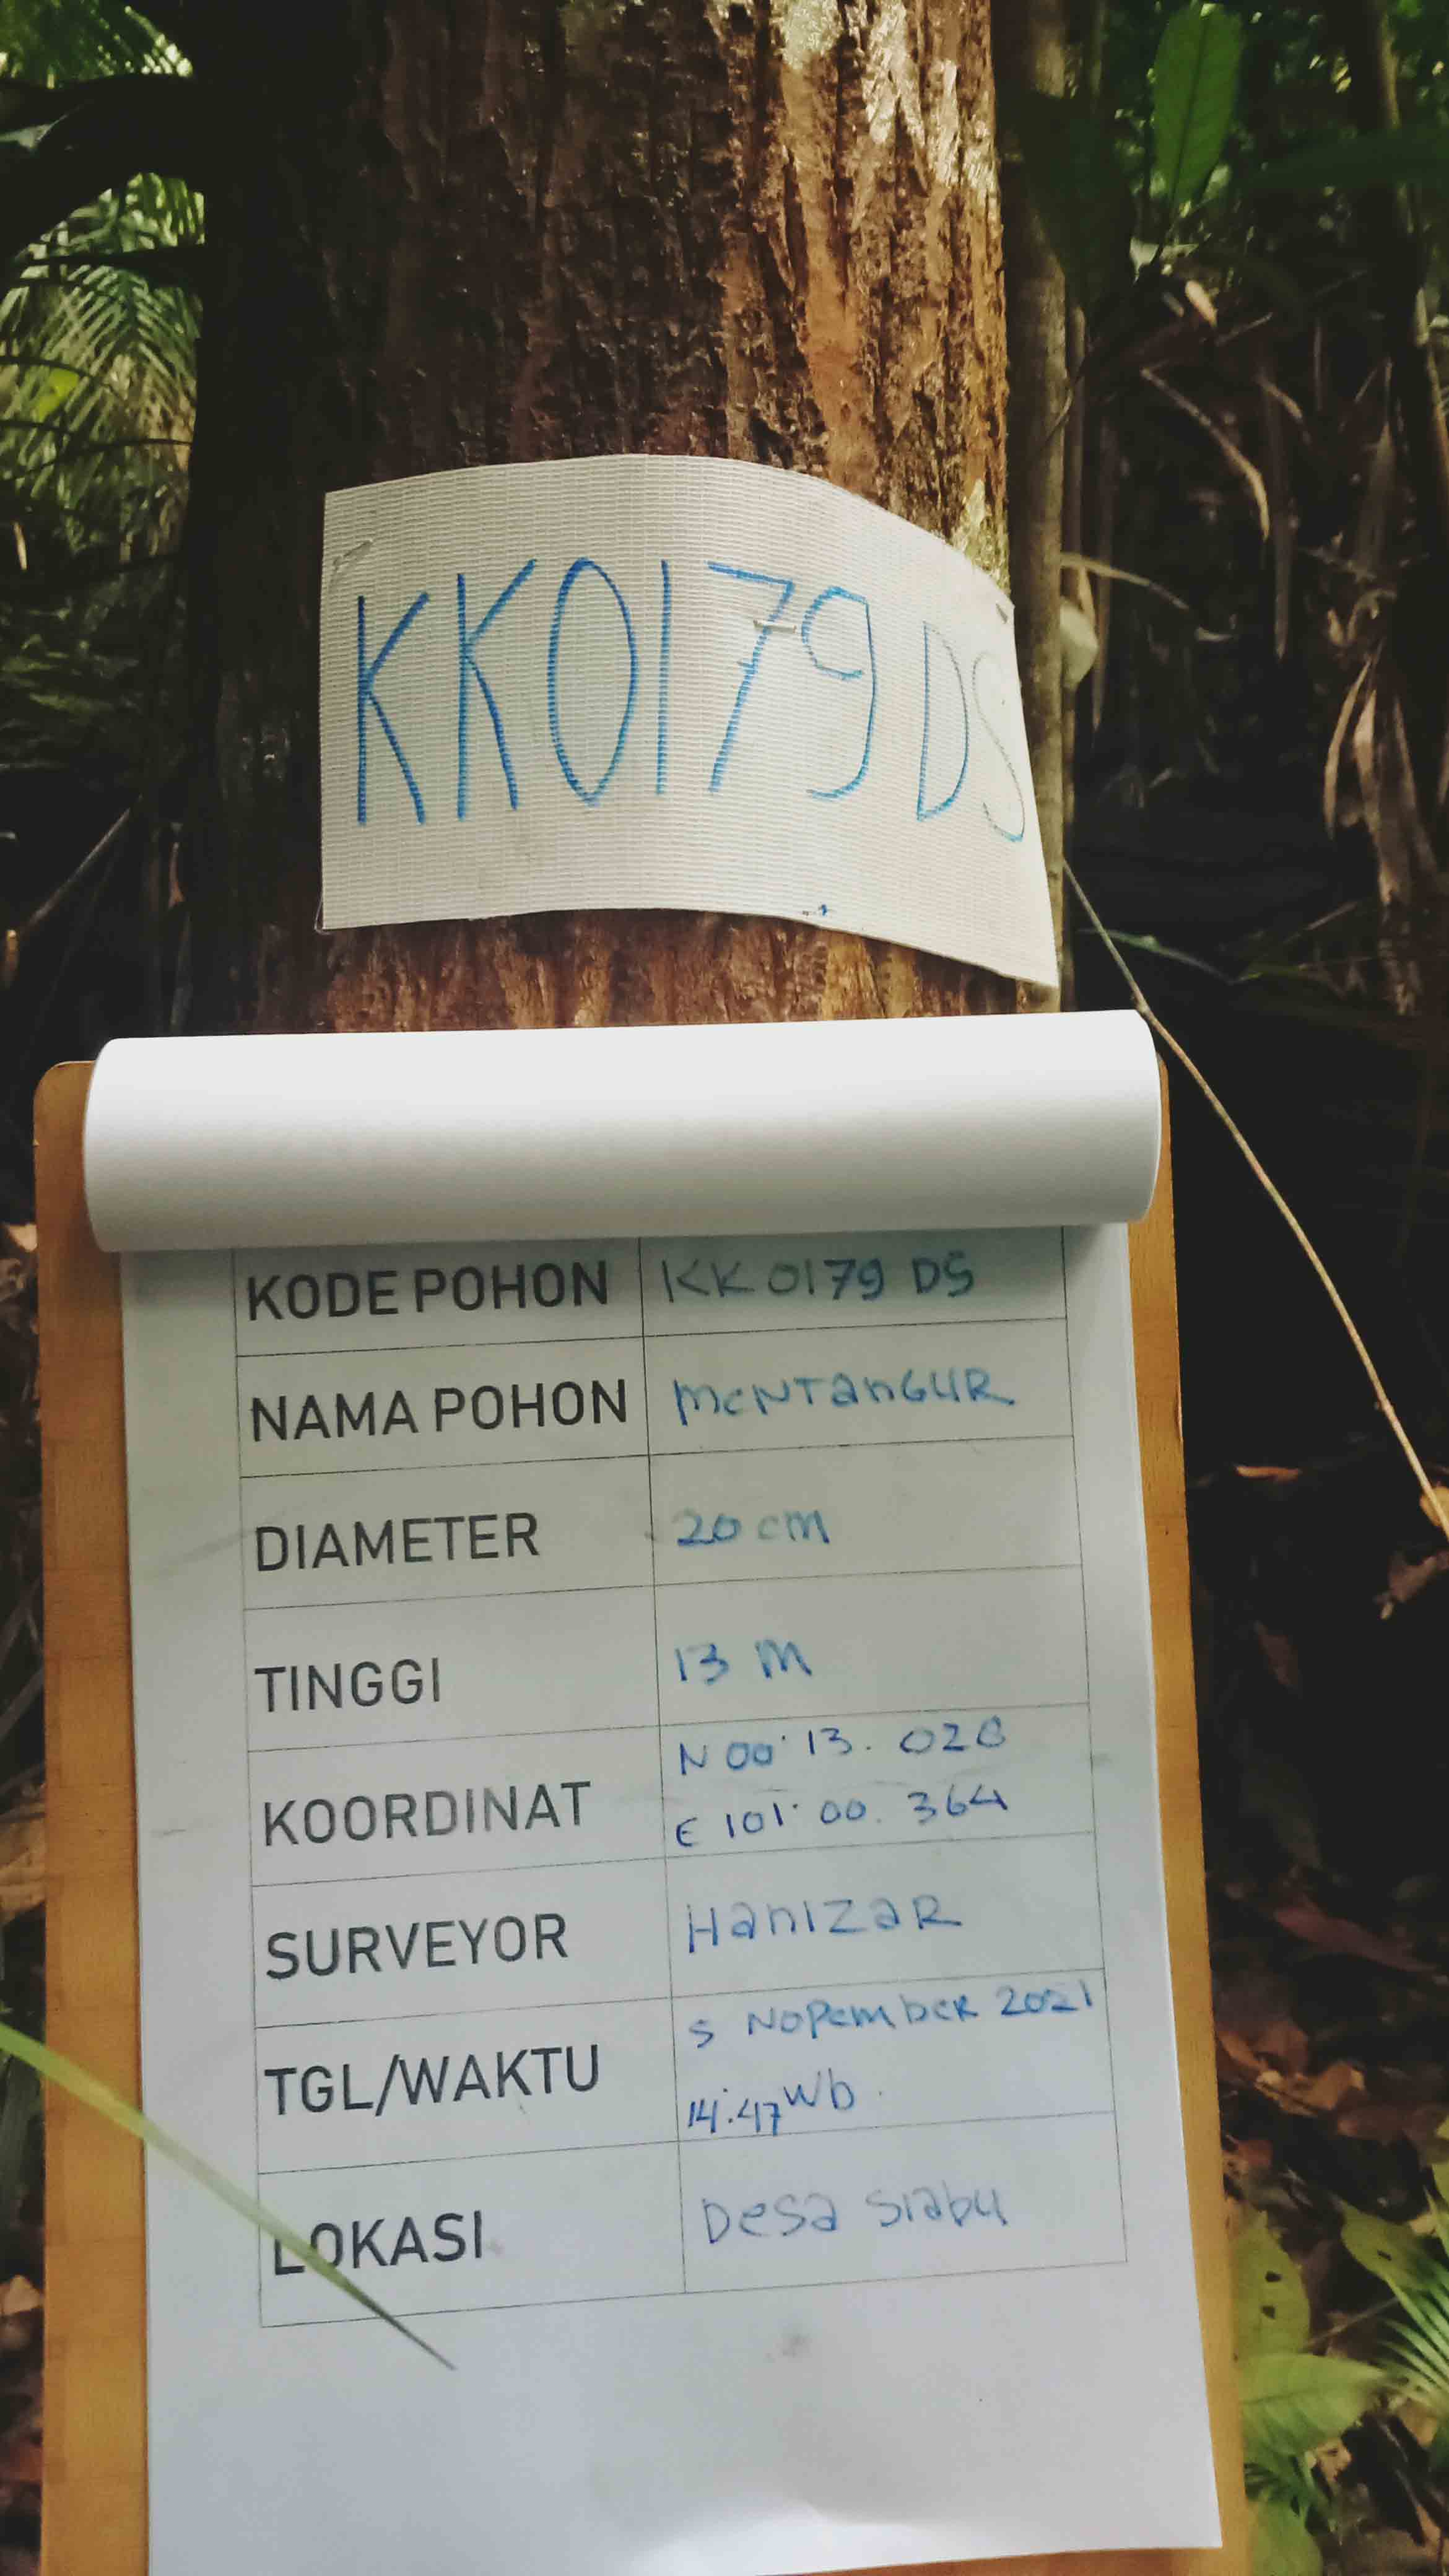 KK0179 DS
KODE POHON KK0179 DS
NAMA POHON MeNTanGUR
DIAMETER 20 cm
TINGGI 13 M
KOORDINAT N 00° 13. 028
E 101° 00. 364
SURVEYOR HanIzaR
TGL/WAKTU 5 NoPembeR 2021
14:47 Wb
LOKASI Desa siabu